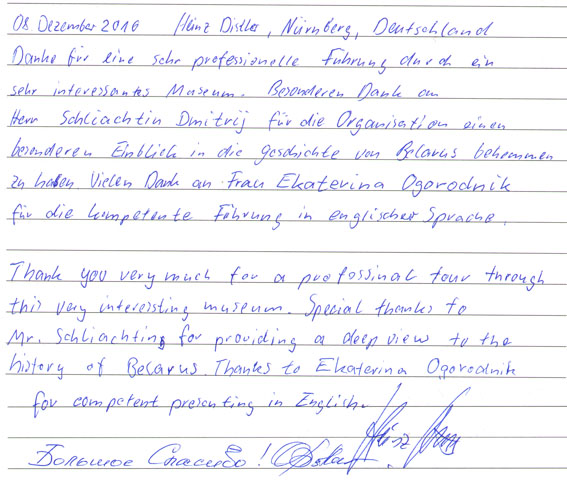 08. Dezember 2016 Heinz Distler, Nürnberg, Deutschland
Danke für eine sehr professionelle Führung durch ein
sehr interessantes Museum. Besonderen Dank an
Herr Schliachtin Dmitrij für die Organisation einen
besonderen Einblick in die Geschichte von Belarus bekommen
zu haben Vielen Dank an Frau Ekaterina Ogorodnik
für die kompetente Führung in englischer Sprache.
Thank you very much for a professinal tour through
this very interessting museum. Special thanks to
Mr. Schliachtin for providing a deep view to the
history of Belarus. Thanks to Ekaterina Ogorodnik
for competent presenting in English.
Большое Спасибо!